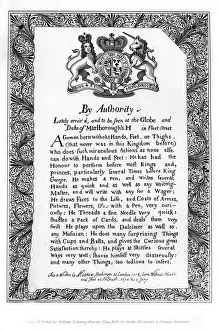 By Authority
Lately arriv'd, and to be seen at the Globe and
Duke of Marlborough's H in Fleet-street
A German born without Hands, Feet, or Thighs,
(that never was in this Kingdom before)
Who does such miraculous Actions as none else
can do with Hands and Feet: He has had the
Honour to perform before most Kings and,
princes, particularly several Times before King
George. He makes a Pen, and writes several
Hands as quick and as well as any Writing-
Master, and will write with any for a Wager:
He draws Faces to the Life, and Coats of Arms,
Pictures, Flowers, &c with a Pen, very curi-
ously: He Threads a fine Needle very quick:
Shuffles a Pack of Cards, and deals them very
swift: He plays upon the Dulcimer as well as
any Musician: He does many surprizing Things
with Cups and Balls, and gives the Curious great
Satisfaction thereby: He plays at Skittles several
Ways very well; shaves himself very dexterously
and many other Things, too tedious to insert.